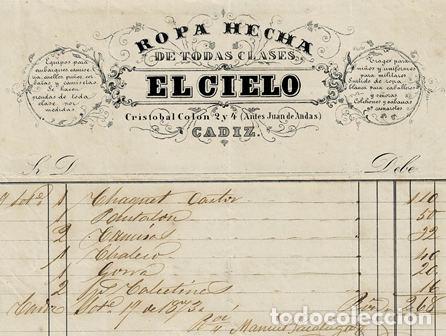 ROPA HECHA
DE TODAS CLASES
EL CIELO
Cristobal Colón 2 y 4 (Antes Juan de Andas)
CADIZ.
Equipos para
embarques, camisas,
cuellos, puños, cor-
batas y camisetas
Se hacen
prendas de toda
clase por
medidas
Trages para
niños y uniformes
para militares
Surtido de ropa
blanca para caballeros
y señoras
Colchones y sabanas
pª camarotes
S. D. Debe
9 1 Chaquet Castor 110
1 Pantalon 50
2 Camisas 32
1 Chaleco 40
1 Gorra 20
2 Calcetines 16
Cadiz 19 de 1873
Manuel
todocoleccion